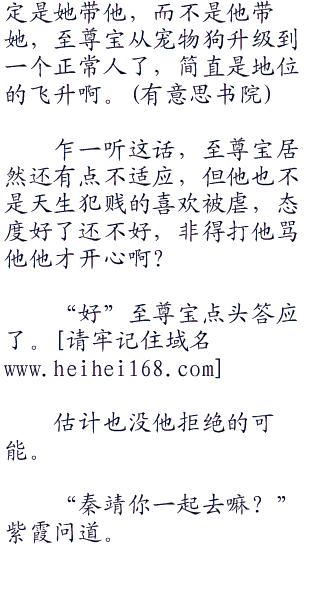 定是她带他，而不是他带
她，至尊宝从宠物狗升级到
一个正常人了，简直是地位
的飞升啊。(有意思书院)
乍一听这话，至尊宝居
然还有点不适应，但他也不
是天生犯贱的喜欢被虐，态
度好了还不好，非得打他骂
他他才开心啊？
“好”至尊宝点头答应
了。[请牢记住域名
www.heihei168.com]
估计也没他拒绝的可
能。
“秦靖你一起去嘛？”
紫霞问道。